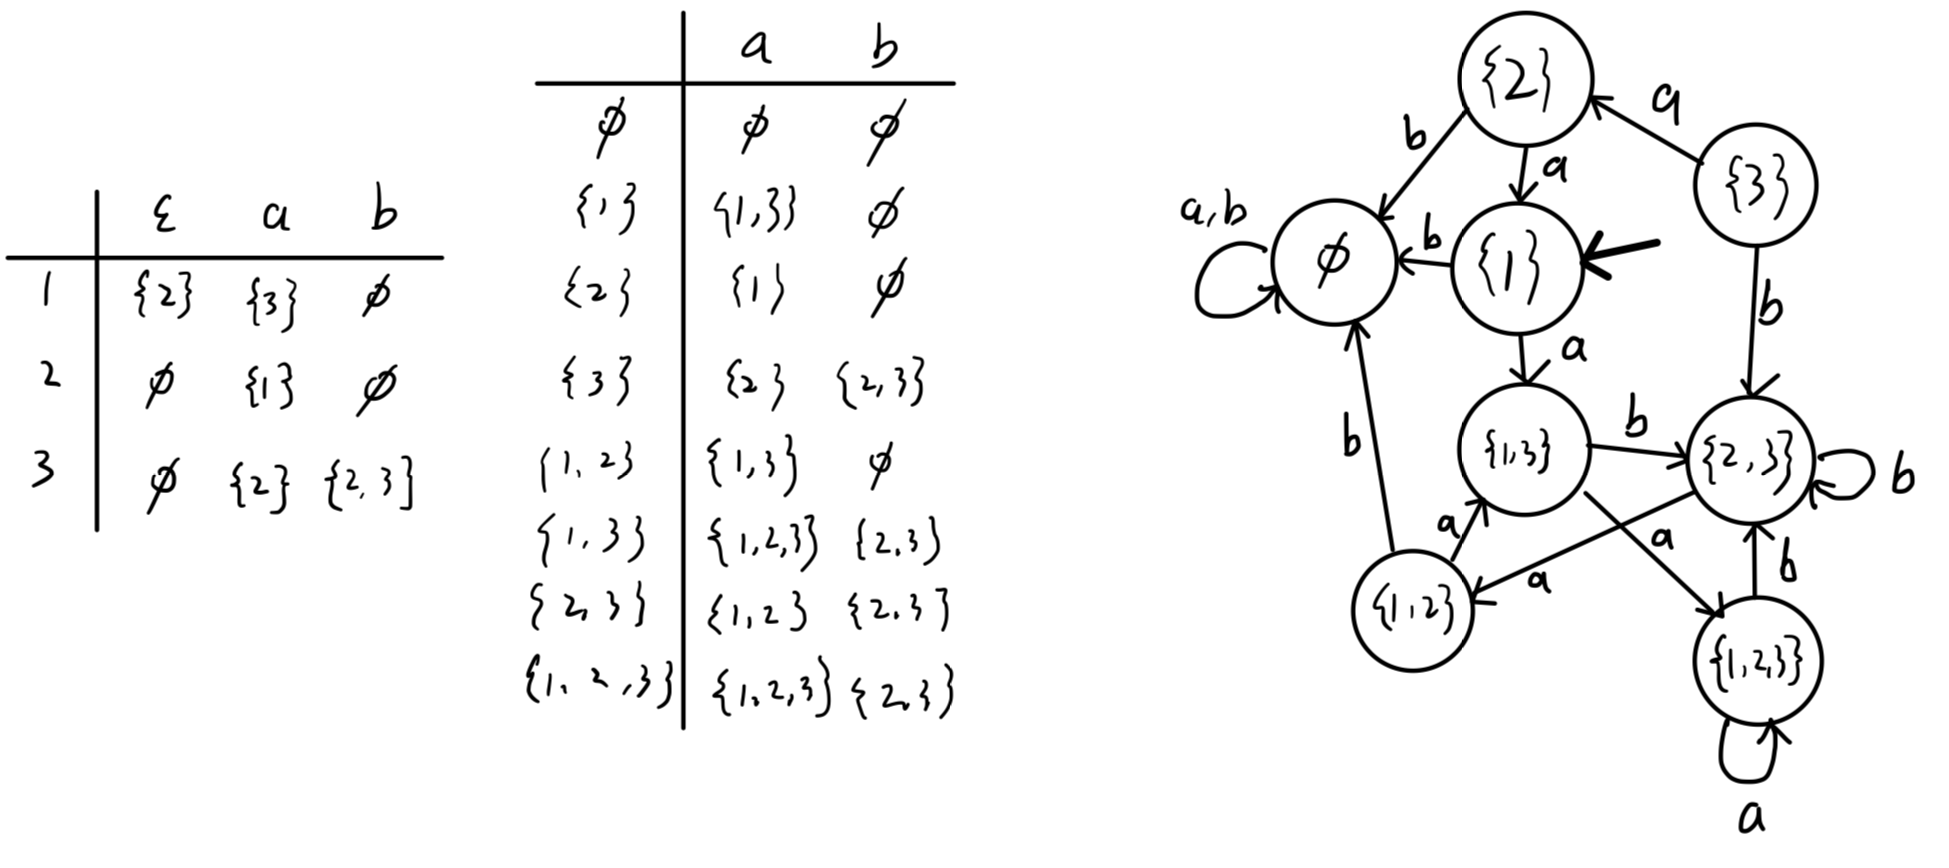 ε a b
1 {2} {3} ∅
2 ∅ {1} ∅
3 ∅ {2} {2,3}
a b
∅ ∅ ∅
{1} {1,3} ∅
{2} {1} ∅
{3} {2} {2,3}
{1,2} {1,3} ∅
{1,3} {1,2,3} {2,3}
{2,3} {1,2} {2,3}
{1,2,3} {1,2,3} {2,3}
{2}
a
b
a
{3}
a,b
∅
b
{1}
b
a
b
{1,3}
b
{2,3}
b
a
a
a
b
{1,2}
{1,2,3}
a